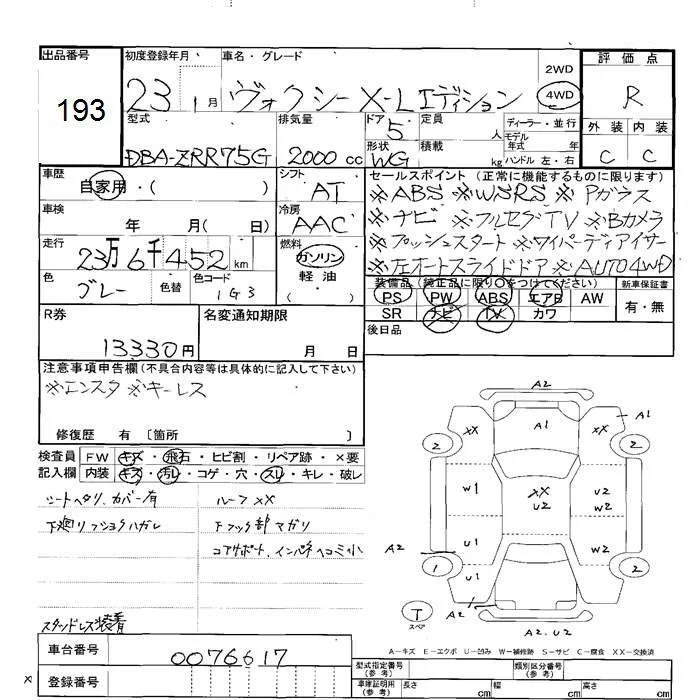 出品番号 初度登録年月 車名・グレード 評価点
193 23 1月 ヴォクシー X-Lエディション 2WD 4WD R
型式 排気量 ドア 5 定員 人 ディーラー・並行 外装 内装
DBA-ZRR75G 2000cc 形状 WG 積載 kg モデル年式 年 ハンドル 左・右 C C
車歴 シフト セールスポイント (正常に機能するものに限ります)
自家用・( ) AT ※ABS ※WSRS ※Pガラス
車検 冷房 ※ナビ ※フルセグTV ※Bカメラ
年 月( 日) AAC ※プッシュスタート ※ワイパーディアイサー
走行 燃料 ※左オートスライドドア ※AUTO4WD
23万6千452km ガソリン 装備品 (純正品に限り○をつけてください) 新車保証書
色 色替 色コード 軽油 PS PW ABS エアB AW 有・無
グレー 1G3 ( ) SR ナビ TV カワ
R券 名変通知期限 後日品
13330円 月 日
注意事項申告欄(不具合内容等は具体的に記入して下さい)
※エンスタ ※キーレス
修復歴 有 〔箇所 〕
検査員 FW キズ・飛石・ヒビ割・リペア跡・×要
記入欄 内装 キズ・汚レ・コゲ・穴・スレ・キレ・破レ
シートヘタリ、カバー有 ルーフXX
下廻リフショクハガレ Fフック部マガリ
コアサポート、インパネヘコミ小
スタッドレス装着
A2
XX A1 XX A1
2 2
W1 XX U2 U2 W2
A2 U1 W2 A2
1 U1 U2 2
A1
T スペア A2.U2
A-キズ E-エクボ U-凹み W-補修跡 S-サビ C-腐食 XX-交換済
車台番号 0076617
型式指定番号(参考) 類別区分番号(参考)
× 登録番号 車庫証明用(参考) 長さ cm 幅 cm 高さ cm